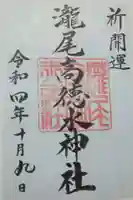 祈開運
瀧尾高徳水神社
令和四年十月九日